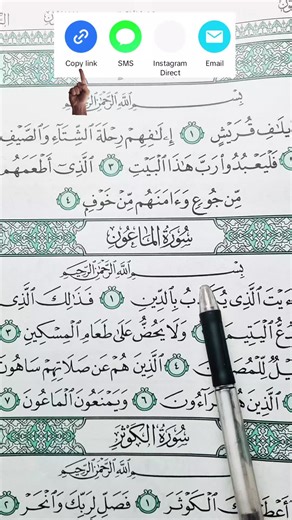 Copy link
SMS
Instagram Direct
Email
بِسْمِ ٱللَّهِ ٱلرَّحْمَٰنِ ٱلرَّحِيمِ
قُرَيْشٍ ١ إِۦلَٰفِهِمْ رِحْلَةَ ٱلشِّتَآءِ وَٱلصَّيْفِ
فَلْيَعْبُدُوا۟ رَبَّ هَٰذَا ٱلْبَيْتِ ٣ ٱلَّذِىٓ أَطْعَمَهُم
مِّن جُوعٍ وَءَامَنَهُم مِّنْ خَوْفٍ ٤
سُورَةُ المَاعُونِ
بِسْمِ ٱللَّهِ ٱلرَّحْمَٰنِ ٱلرَّحِيمِ
ٱلَّذِى بِٱلدِّينِ ١ فَذَٰلِكَ ٱلَّذِى
ٱلْيَتِيمَ وَلَا يَحُضُّ عَلَىٰ طَعَامِ ٱلْمِسْكِينِ ٣
٤ ٱلَّذِينَ هُمْ عَن صَلَاتِهِمْ سَاهُونَ
ٱلَّذِينَ هُمْ ٦ وَيَمْنَعُونَ ٱلْمَاعُونَ ٧
سُورَةُ الكَوْثَرِ
بِسْمِ ٱللَّهِ ٱلرَّحْمَٰنِ ٱلرَّحِيمِ
ٱلْكَوْثَرَ ١ فَصَلِّ لِرَبِّكَ وَٱنْحَرْ ٢